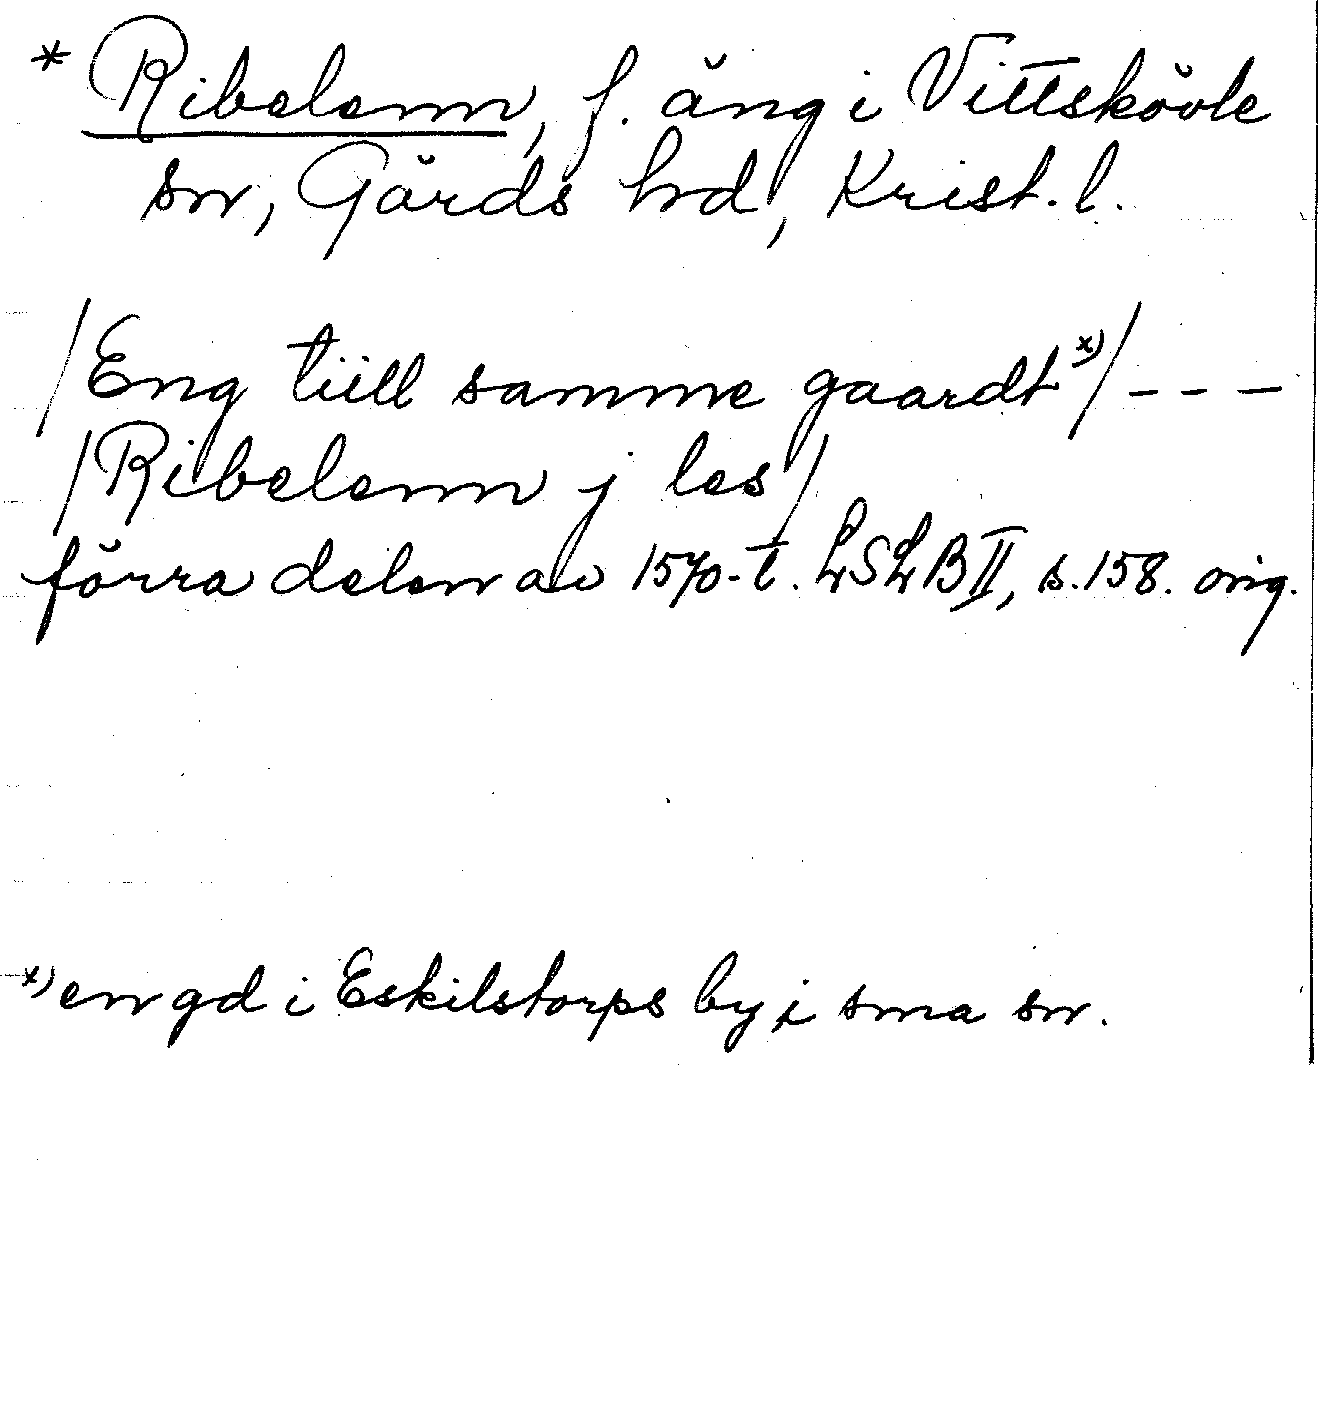 * Ribelenn, f. äng i Vittskövle
sn, Gärds hd, Krist. l.
/Eng tiill samme gaardt x)/ - - -
/Ribelenn j les/
förra delen av 1570-t. LSLB II, s. 158. orig.
x) en gd i Eskilstorps by i sma sn.